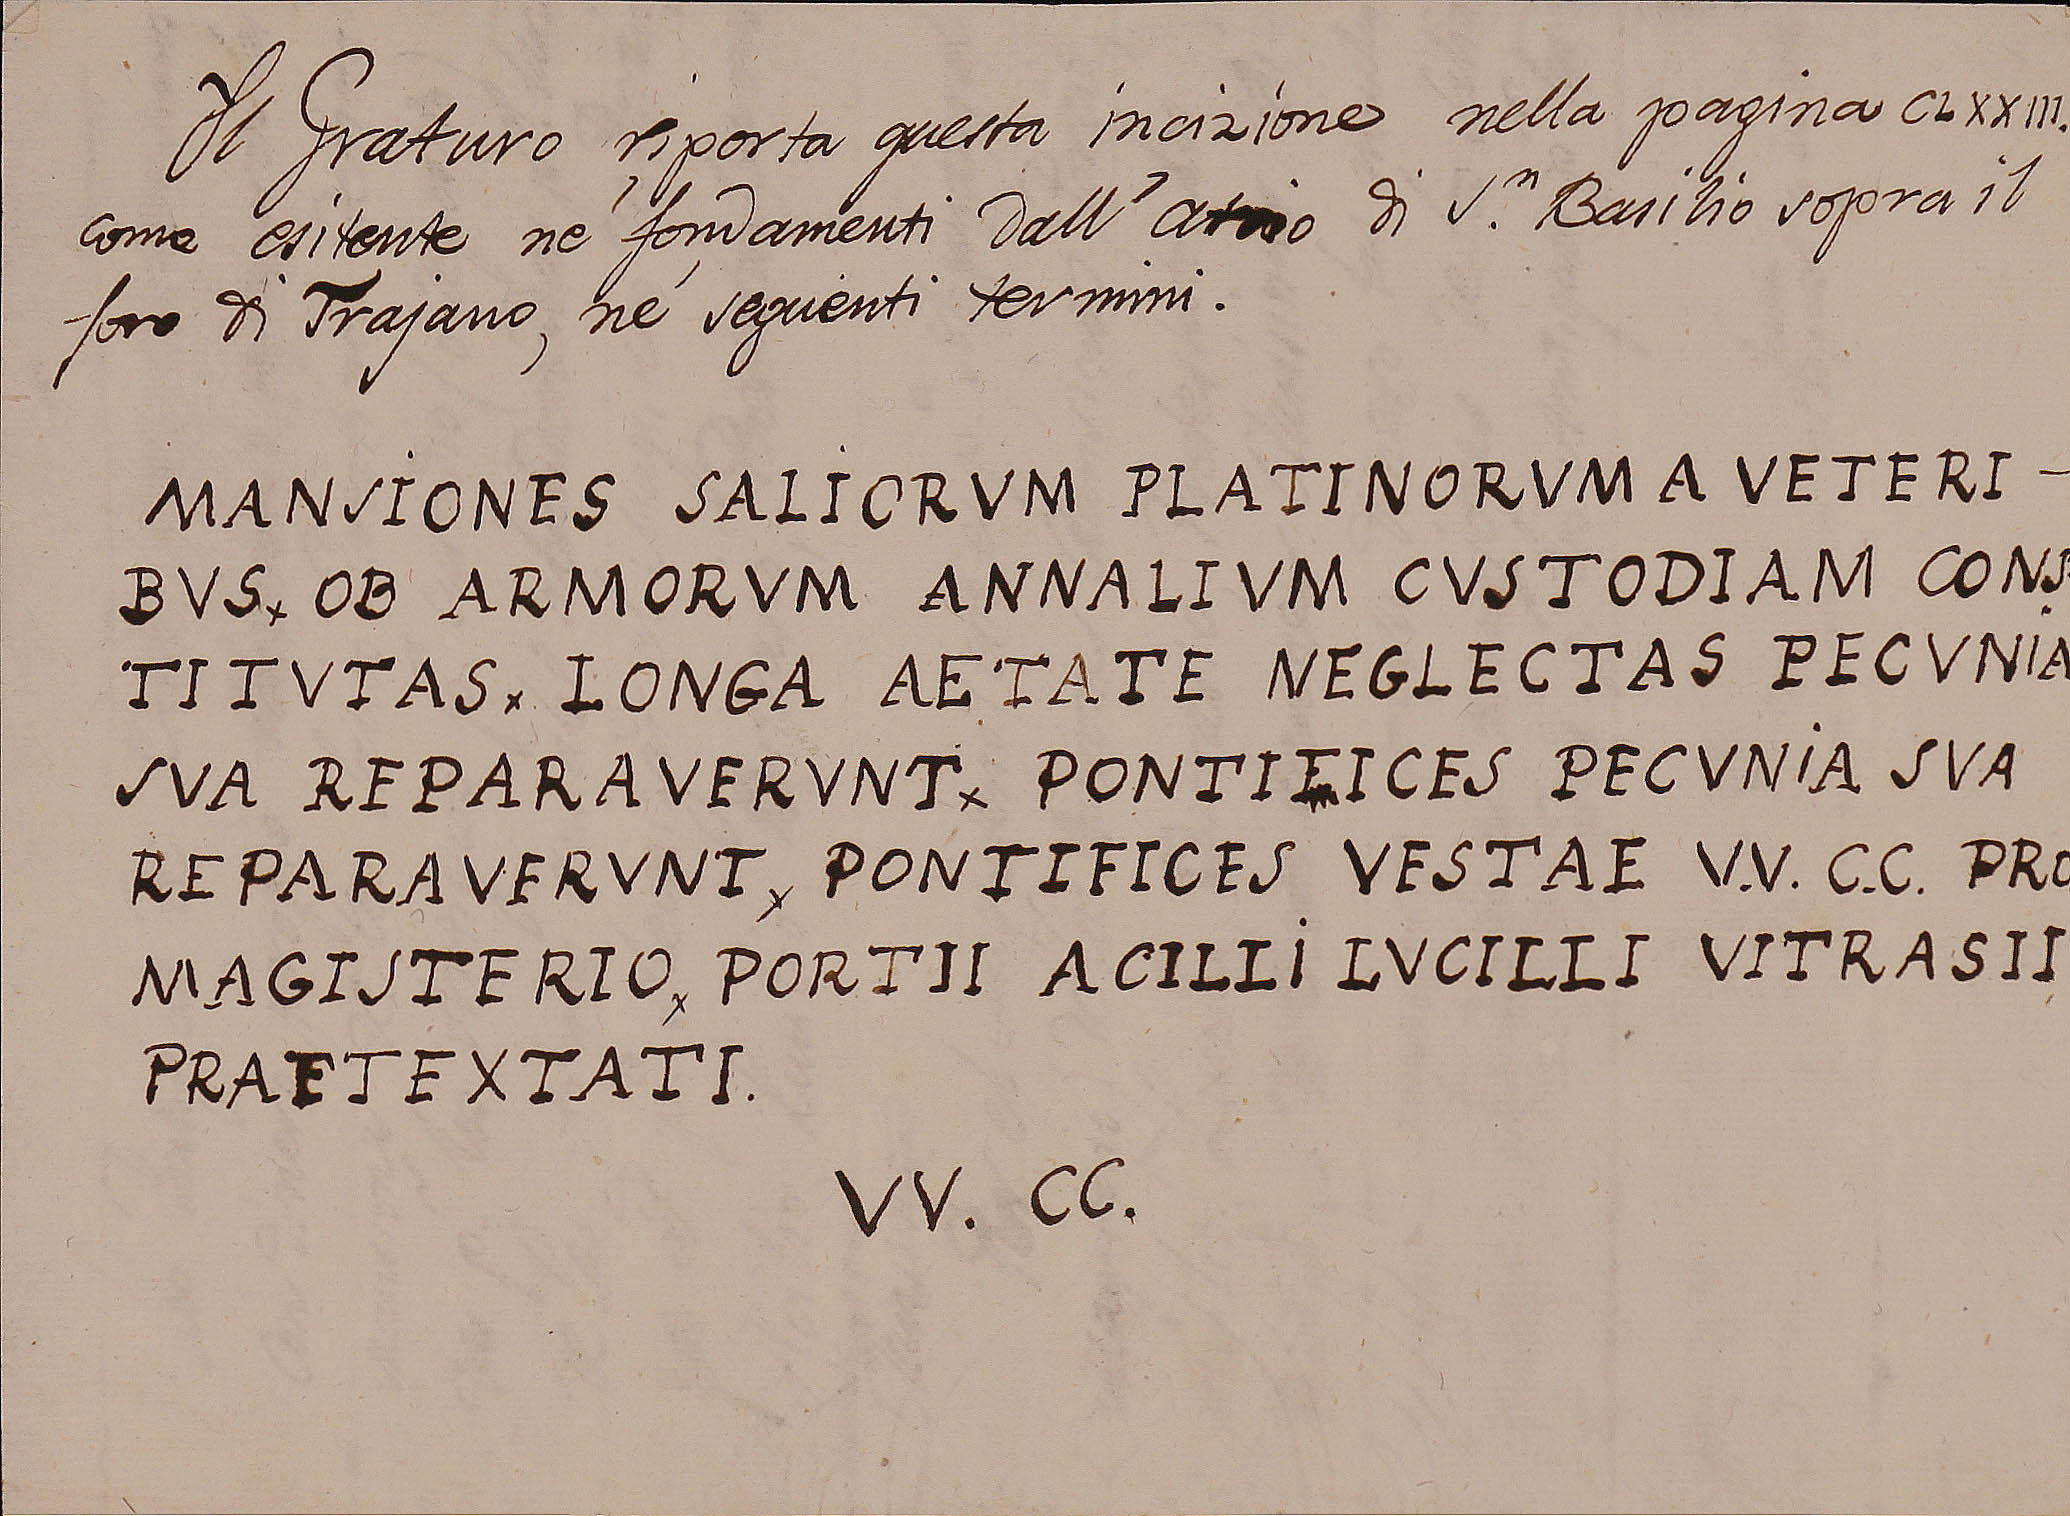 Il Graturo riporta questa incizione nella pagina CLXXIII.
come esitente ne' fondamenti dall' atrio di S.n Basilio sopra il
foro di Trajano, ne' seguenti termini.
MANSIONES SALIORVM PLATINORVM A VETERI-
BVS× OB ARMORVM ANNALIVM CVSTODIAM CONS
TITVTAS× LONGA AETATE NEGLECTAS PECVNIA
SVA REPARAVERVNT× PONTIFICES PECVNIA SVA
REPARAVERVNT× PONTIFICES VESTAE V.V. C.C. PRO
MAGISTERIO× PORTII ACILLI LVCILLI VITRASII
PRAETEXTATI.
VV. CC.